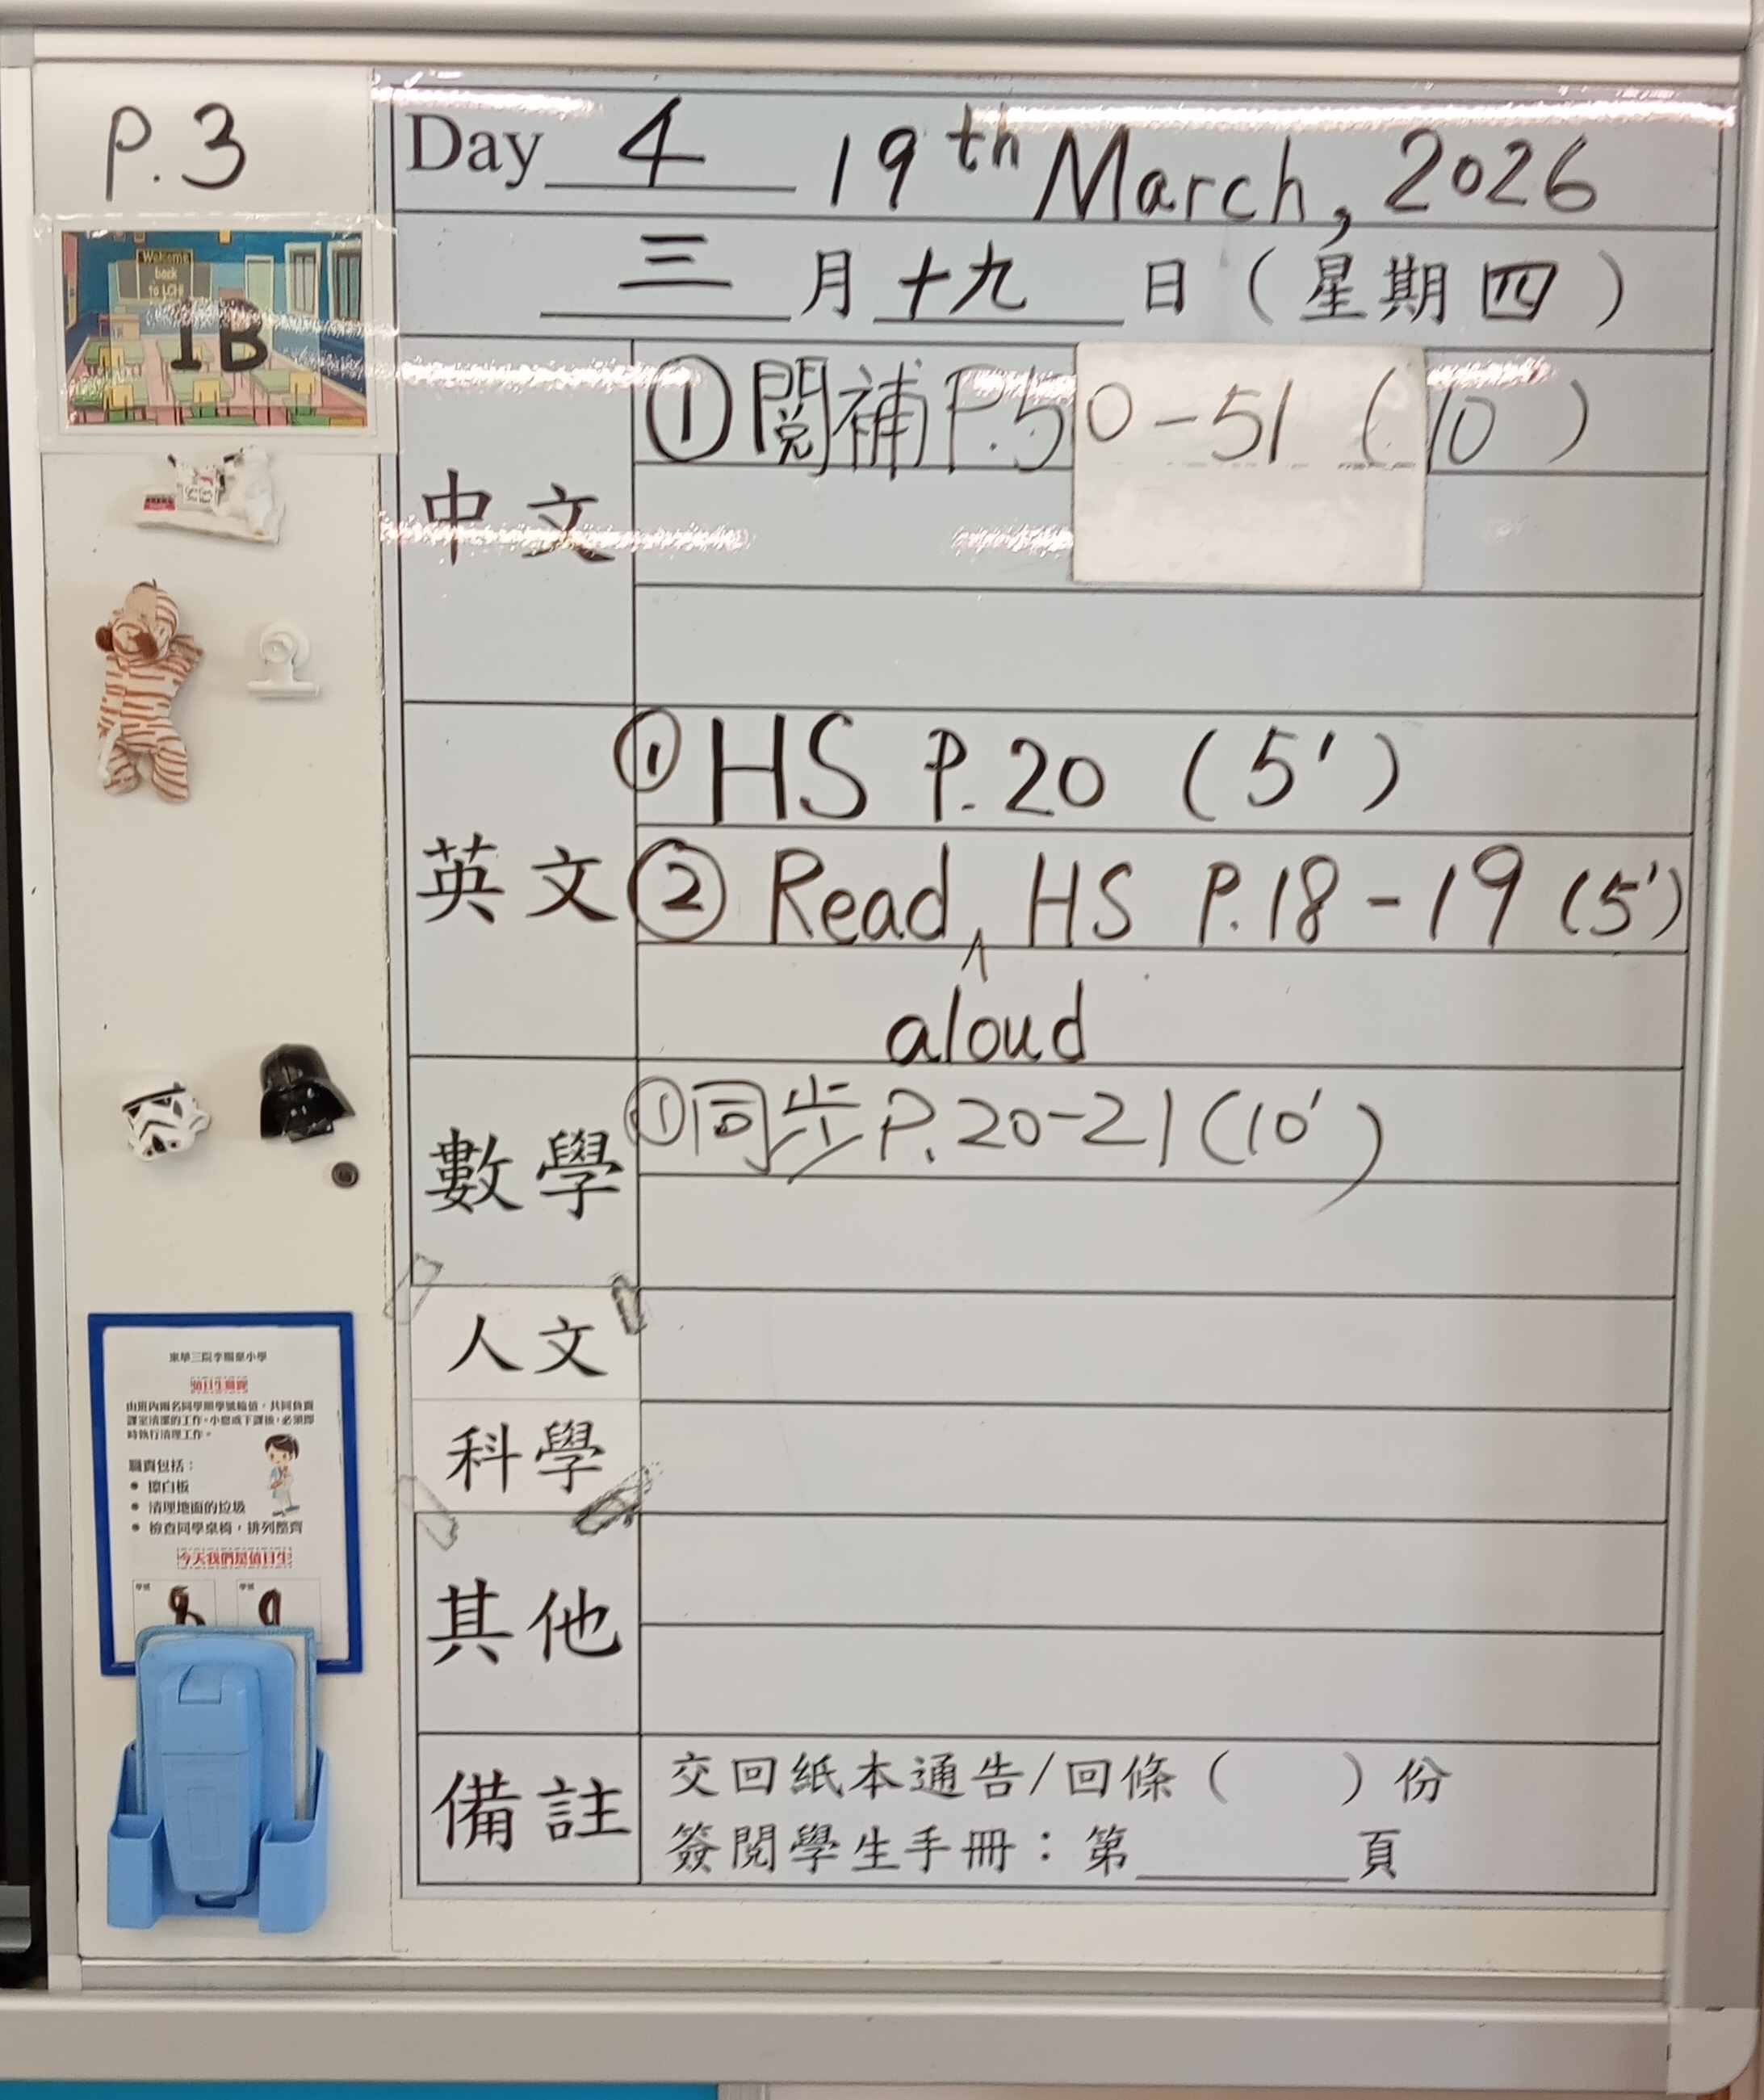 P.3
Day 4 19th March, 2026
三月十九日（星期四）
Welcome
back
to LCH
1B
中文
①閱補P.50-51 (10')
英文
①HS P.20 (5')
②Read HS P.18-19 (5')
^
aloud
數學
①同步P.20-21(10')
人文
科學
其他
備註
交回紙本通告/回條（ ）份
簽閱學生手冊：第____頁
值日生職責
由班內兩名同學順學號輪值，共同負責
課室清潔的工作。小息或下課後，必須即
時執行清理工作。
職責包括：
● 擦白板
● 清理地面的垃圾
● 檢查同學桌椅，排列整齊
今天我們是值日生
學號 學號
8 9